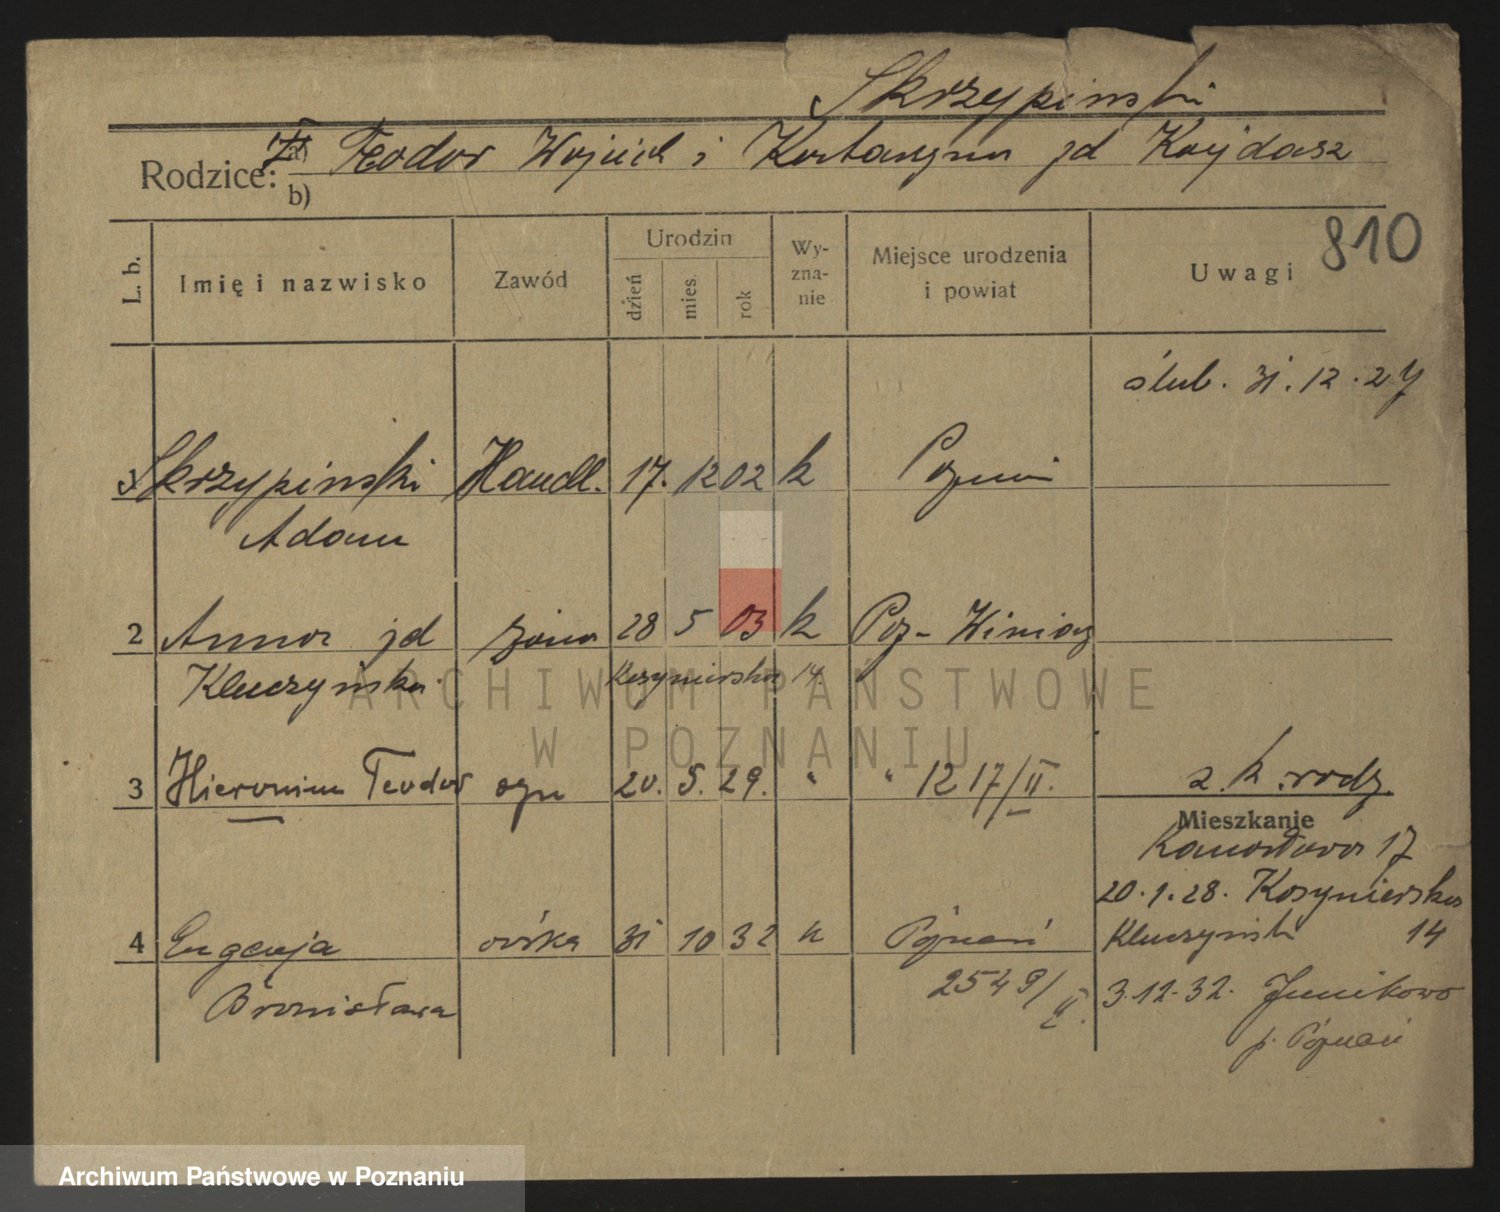 Skrzypiński
Rodzice: a) Teodor Wojciech i jd Kujdasz
b)
810
L. b. Imię i nazwisko Zawód Urodzin dzień mies. rok Wy-zna-nie Miejsce urodzenia i powiat Uwagi
ślub. 31.12.27
1 Skrzypiński Handl. 17. 12 02 k Poznań
Adam
2 Anna jd żona 28 5 03 k Poz- Winiary
Kluczyńska Kosynierska 14.
3 Hieronim Teodor syn 20. 5. 29. " " 1217/II. z. k. rodz.
Mieszkanie
17
20.1.28. Kosynierska
4 Eugenja córka 31 10 32 k Poznań Kluczyński 14
Bronisława 2549/II. 3.12.32. Junikowo
p. Poznań
ARCHIWUM PAŃSTWOWE
W POZNANIU
Archiwum Państwowe w Poznaniu